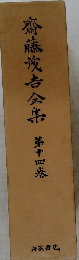 齋藤茂吉全集
第十四卷
岩波書店